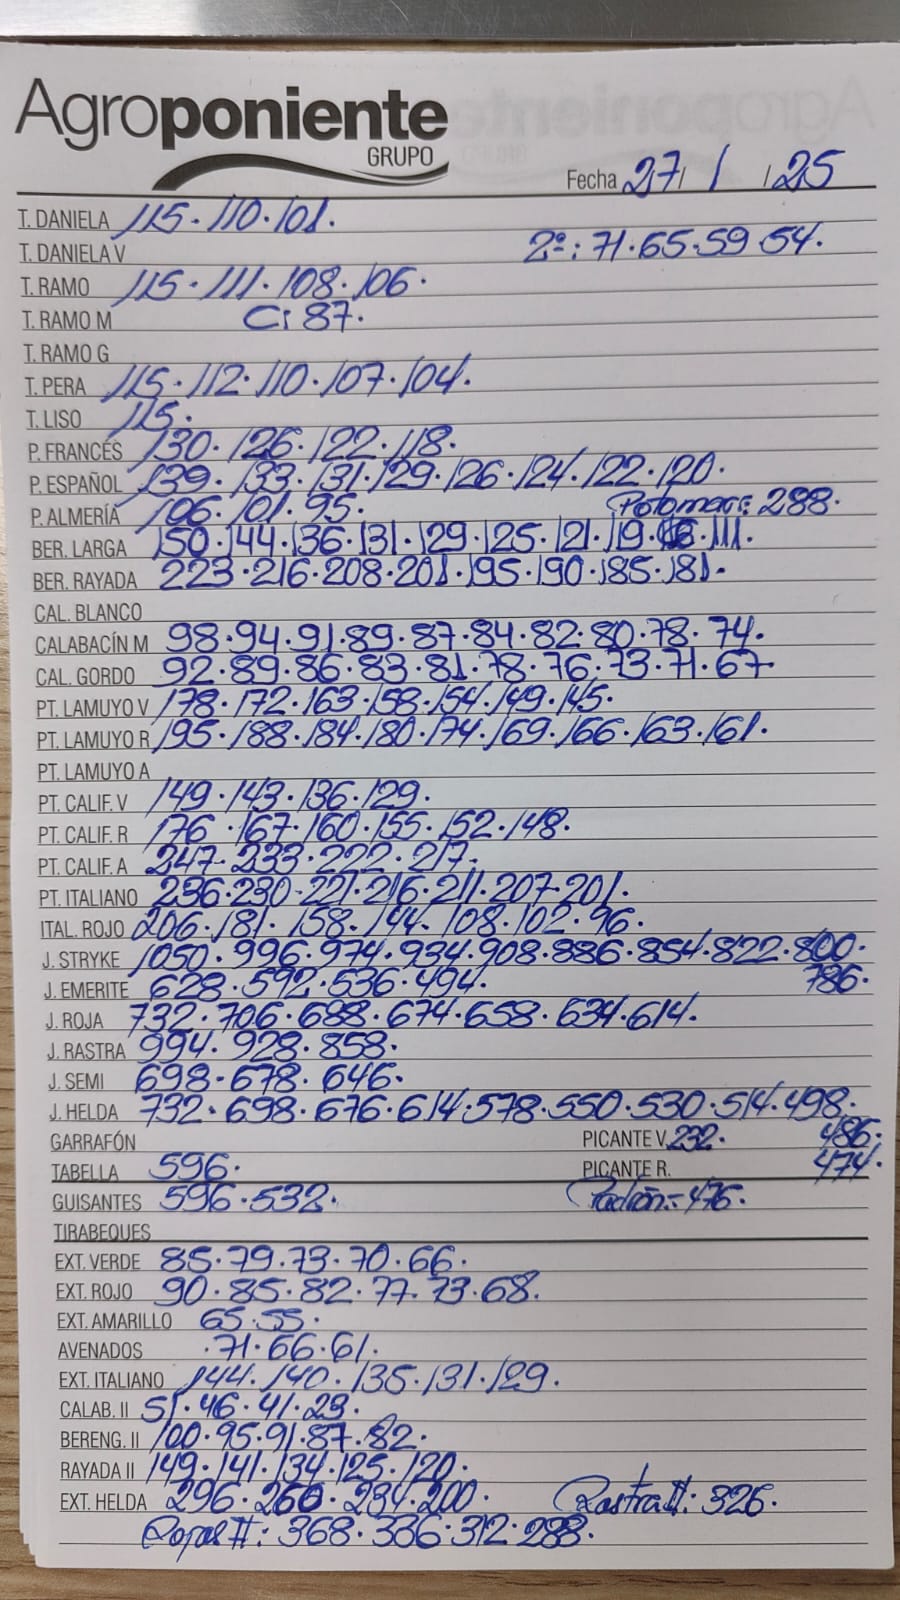 Agroponiente
GRUPO
Fecha 27/1/25
T. DANIELA 115·110·101.
T. DANIELA V 2ª: 71·65·59·54.
T. RAMO 115·111·108·106·
T. RAMO M C: 87·
T. RAMO G
T. PERA 115·112·110·107·104.
T. LISO 115·
P. FRANCÉS 130·126·122·118·
P. ESPAÑOL 139·133·131·129·126·124·122·120·
P. ALMERÍA 106·101·95· Potomac: 288·
BER. LARGA 150·144·136·131·129·125·121·119·116·111.
BER. RAYADA 223·216·208·201·195·190·185·181·
CAL. BLANCO
CALABACÍN M 98·94·91·89·87·84·82·80·78·74.
CAL. GORDO 92·89·86·83·81·78·76·73·71·67·
PT. LAMUYO V 178·172·163·158·154·149·145·
PT. LAMUYO R 195·188·184·180·174·169·166·163·161·
PT. LAMUYO A
PT. CALIF. V 149·143·136·129·
PT. CALIF. R 176·167·160·155·152·148·
PT. CALIF. A 247·233·222·217·
PT. ITALIANO 236·230·221·216·211·207·201·
ITAL. ROJO 206·181·158·144·108·102·96·
J. STRYKE 1050·996·974·934·908·886·854·822·800·
J. EMERITE 628·592·536·494. 786·
J. ROJA 732·706·688·674·658·634·614·
J. RASTRA 994·928·858·
J. SEMI 698·678·646·
J. HELDA 732·698·676·614·578·550·530·514·498·
GARRAFÓN PICANTE V. 232· 486·
TABELLA 596· PICANTE R. 474·
GUISANTES 596·532· Padrón:-476·
TIRABEQUES
EXT. VERDE 85·79·73·70·66·
EXT. ROJO 90·85·82·77·73·68.
EXT. AMARILLO 65·55·
AVENADOS ·71·66·61·
EXT. ITALIANO 144·140·135·131·129·
CALAB. II 51·46·41·23·
BERENG. II 100·95·91·87·82·
RAYADA II 149·141·134·125·120·
EXT. HELDA 296·260·234·200· Rastra II: 326·
Rojas II: 368·336·312·288·